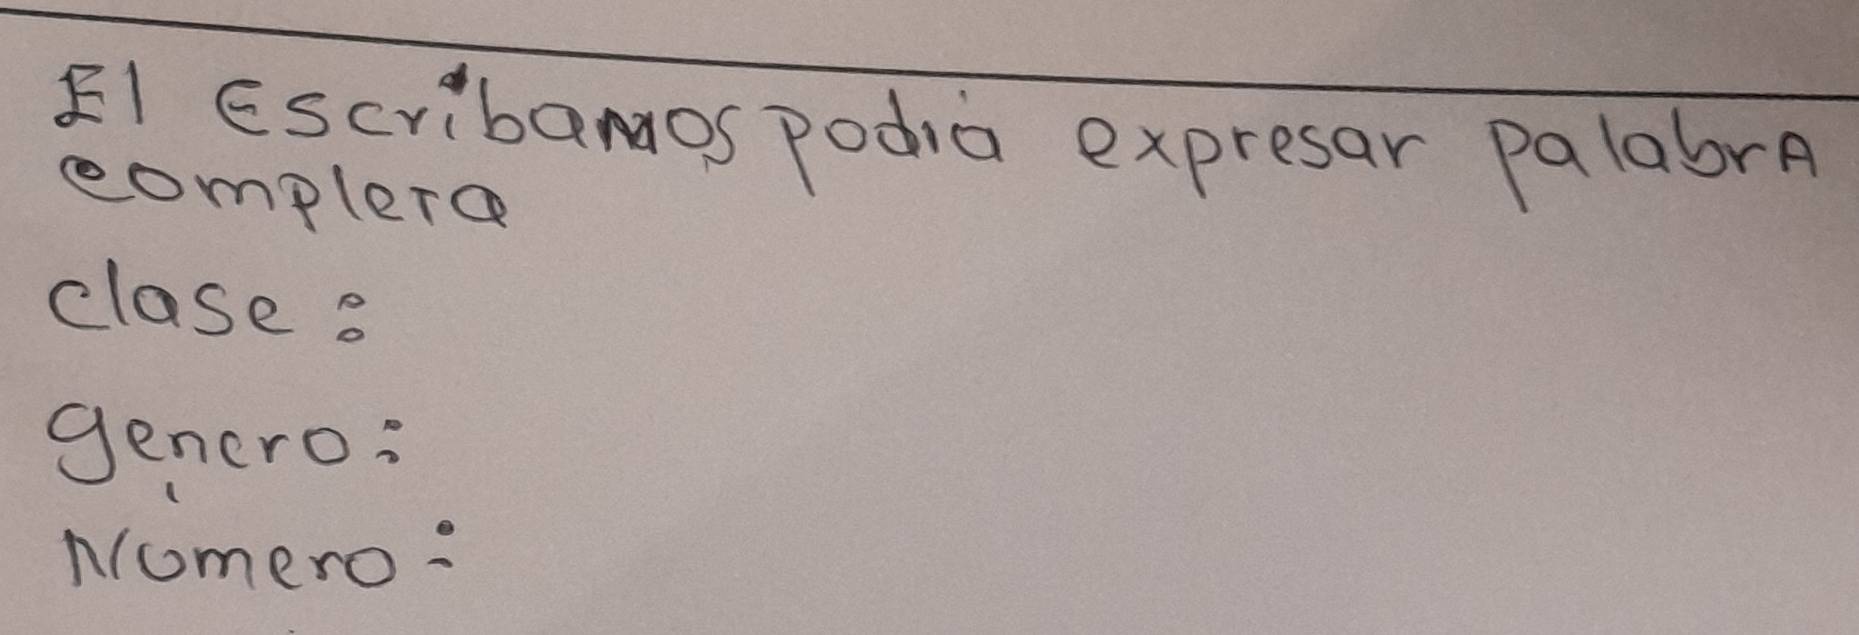 El Escribamos podia expresar palabrA
completa
clase:
genero:
Número: